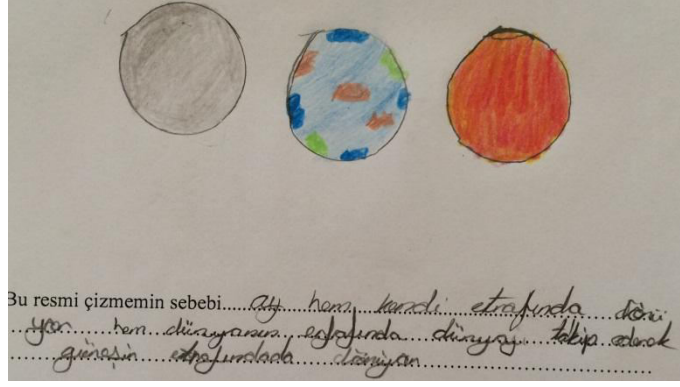 Bu resmi çizmemin sebebi.....ay hem kendi etrafında dönü
yor hem dünyanın etrafında dünyayı takip ederek
güneşin etrafındada dönüyor